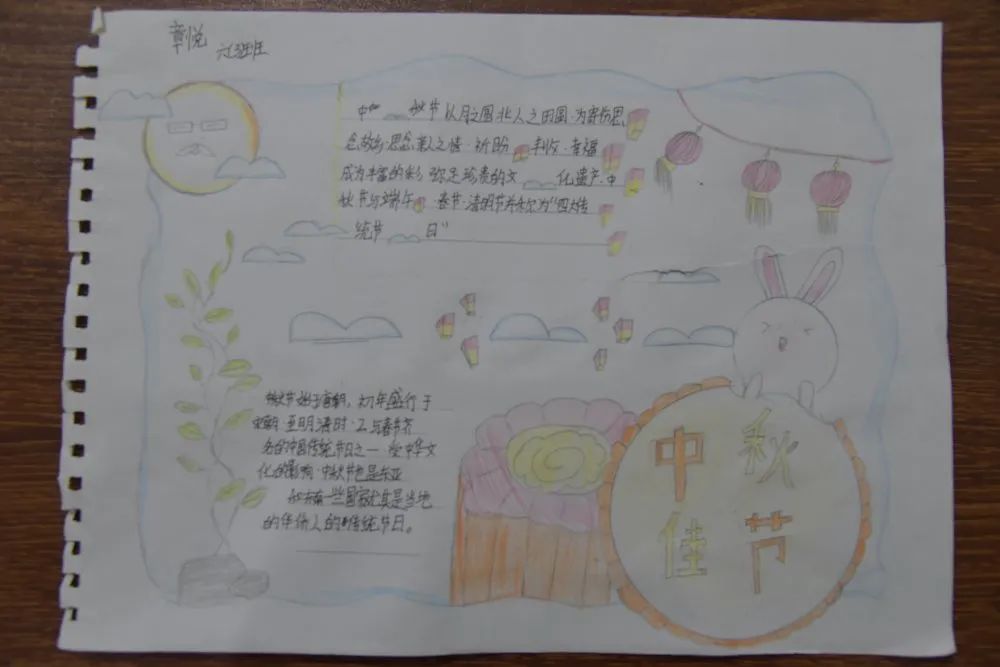 章悦
中 秋节以月之圆北人之田圆·为寄伤思
念故乡·思念亲人之情·祈盼 丰收·幸福
成为丰富的彩 弥足珍贵的文 化遗产·中
秋节与端午 春节·清明节并称为“四大传
统节 日”
秋节始于唐朝，初年盛行于
朝·至明清时·已与春节齐
名的中国传统节日之一 受中华文
化的影响·中秋节也是东亚
一些国家尤其是当地
的华侨人的传统节日。
中秋
佳节